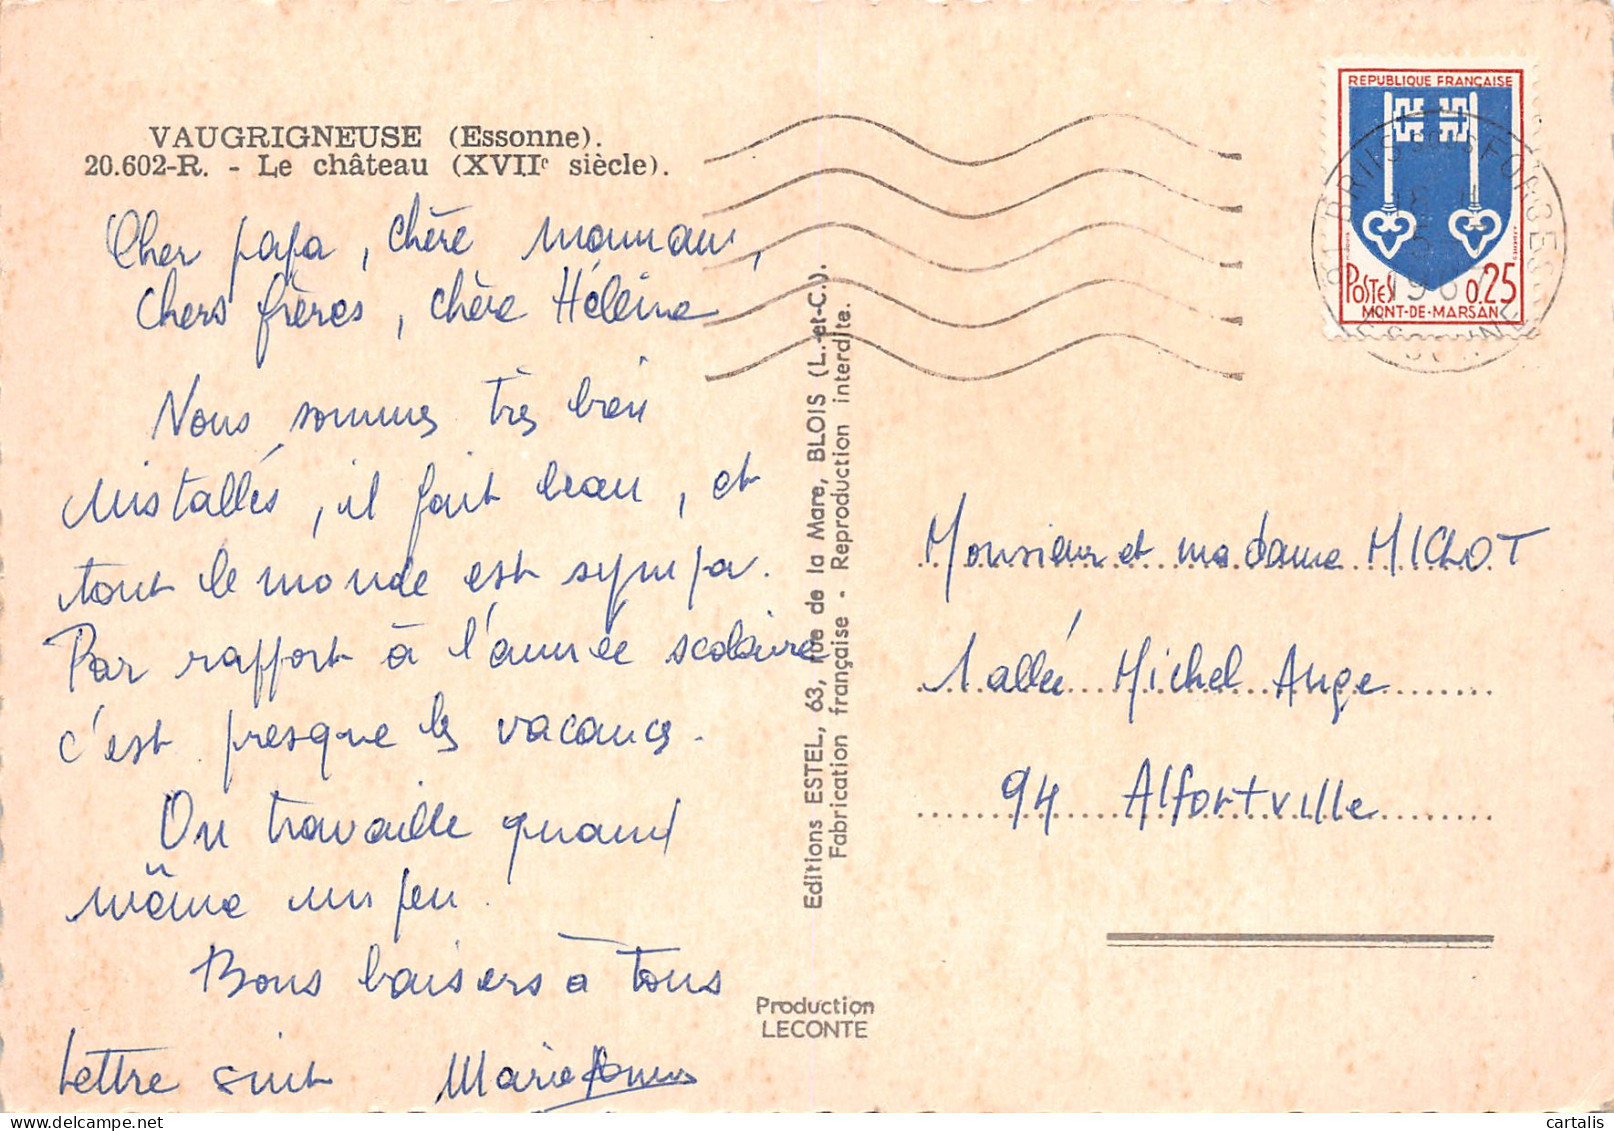 VAUGRIGNEUSE (Essonne).
20.602-R. - Le château (XVIIe siècle).
Cher papa, chère maman,
chers frères, chère Hélène
Nous sommes très bien
installés, il fait beau, et
tout le monde est sympa.
Par rapport à l'année scolaire
c'est presque les vacances.
On travaille quand
même un peu.
Bons baisers à tous
Lettre suit Marie
Editions ESTEL, 63, rue de la Mare, BLOIS (L.-et-C.).
Fabrication française - Reproduction interdite.
Production
LECONTE
REPUBLIQUE FRANÇAISE
POSTES 0.25
MONT-DE-MARSAN
91 BRIIS SOUS FORGES
ESSONNE
Monsieur et madame MICHOT
1 allée Michel Ange
94 Alfortville
cartalis